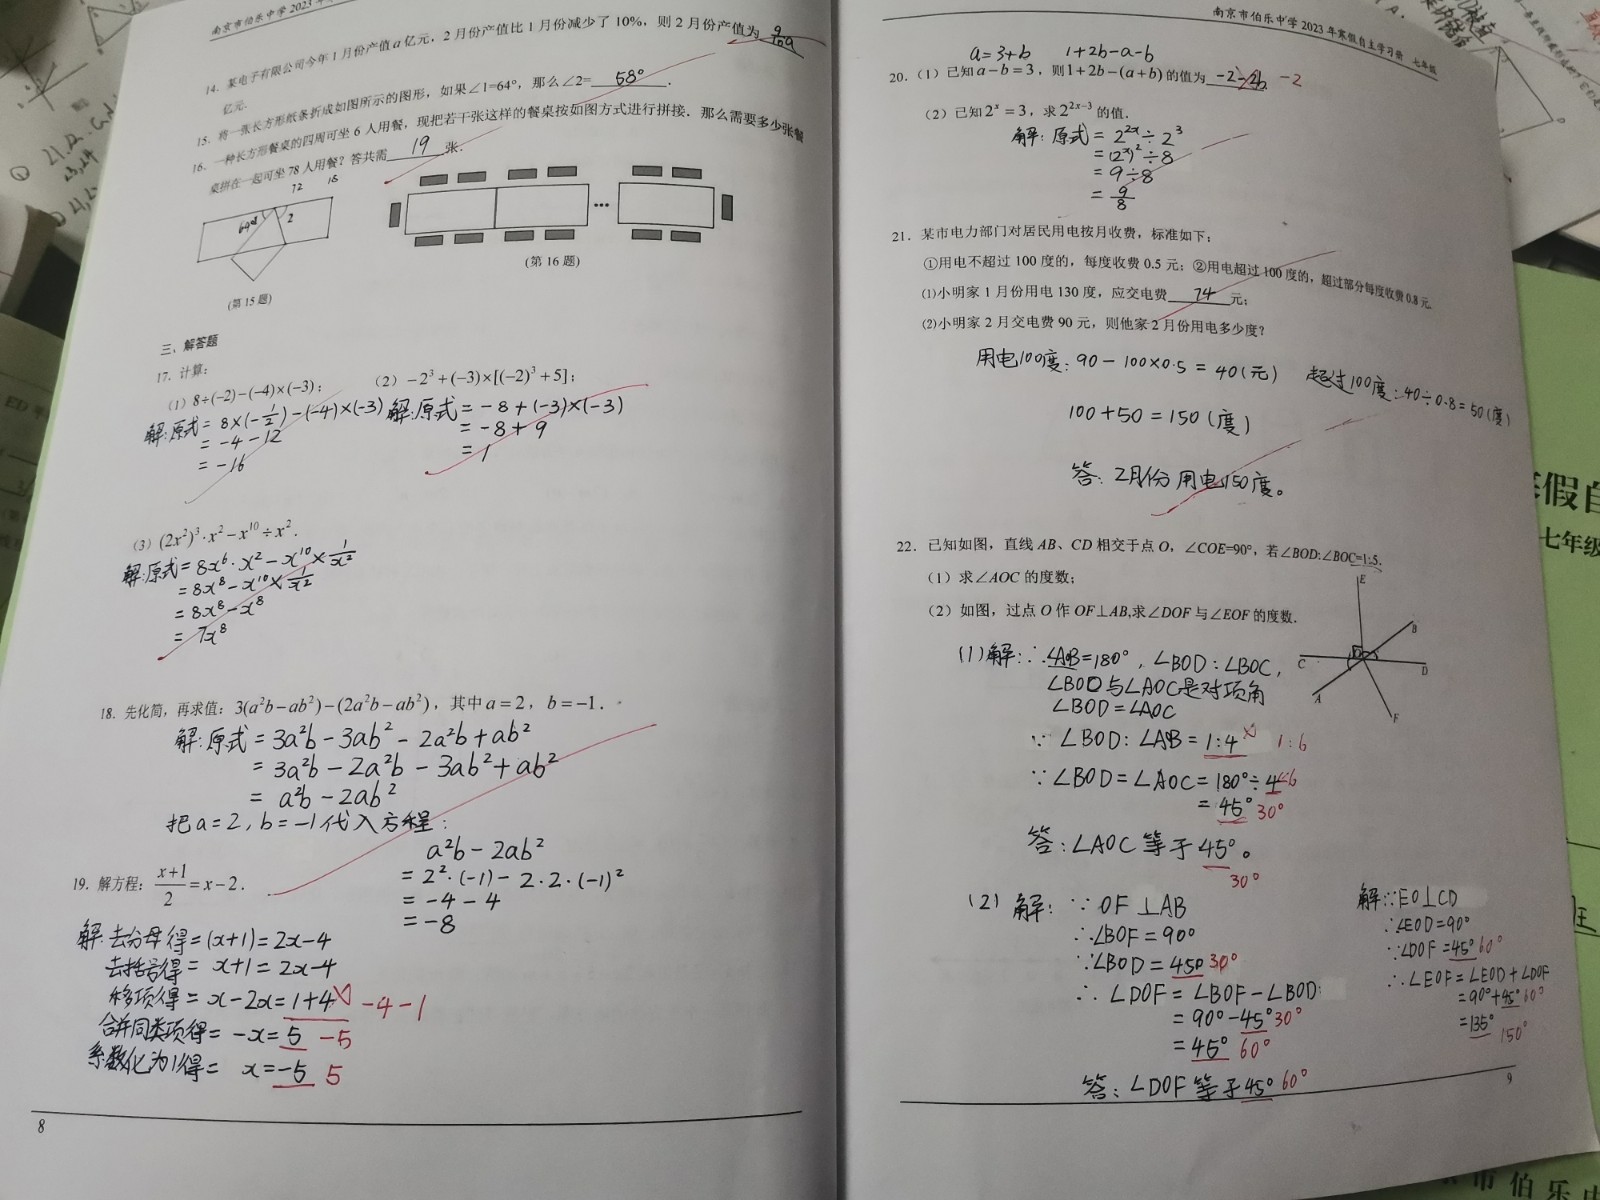 南京市伯乐中学 2023 年
14. 某电子有限公司今年1月份产值a亿元，2月份产值比1月份减少了10%，则2月份产值为 9/10 a
亿元.
15. 将一张长方形纸条折成如图所示的图形，如果∠1=64°，那么∠2= 58° .
16. 一种长方形餐桌的四周可坐6人用餐，现把若干张这样的餐桌按如图方式进行拼接. 那么需要多少张餐
桌拼在一起可坐78人用餐？答共需 19 张.
72 18
64° 2
(第15题)
(第16题)
三、解答题
17. 计算:
(1) 8÷(-2)-(-4)×(-3);
(2) -2³+(-3)×[(-2)³+5];
解:原式= 8×(-1/2)-(-4)×(-3)
= -4-12
= -16
解:原式= -8+(-3)×(-3)
= -8+9
= 1
(3) (2x²)³·x²-x¹⁰÷x².
解:原式= 8x⁶·x²-x¹⁰×1/x²
= 8x⁸-x¹⁰×1/x²
= 8x⁸-x⁸
= 7x⁸
18. 先化简，再求值: 3(a²b-ab²)-(2a²b-ab²)，其中a=2，b=-1.
解:原式= 3a²b-3ab²-2a²b+ab²
= 3a²b-2a²b-3ab²+ab²
= a²b-2ab²
把a=2, b=-1代入方程:
a²b-2ab²
= 2²·(-1)-2·2·(-1)²
= -4-4
= -8
19. 解方程: (x+1)/2=x-2.
解:去分母得=(x+1)=2x-4
去括号得= x+1=2x-4
移项得= x-2x=1+4 -4-1
合并同类项得= -x=5 -5
系数化为1得= x=-5 5
8
南京市伯乐中学 2023 年寒假自主学习册 七年级
a=3+b 1+2b-a-b
20. (1) 已知a-b=3，则1+2b-(a+b)的值为 -2-2b -2
(2) 已知2ˣ=3，求2²ˣ⁻³的值.
解:原式= 2²ˣ÷2³
= (2ˣ)²÷8
= 9÷8
= 9/8
21. 某市电力部门对居民用电按月收费，标准如下:
①用电不超过100度的，每度收费0.5元；②用电超过100度的，超过部分每度收费0.8元.
(1)小明家1月份用电130度，应交电费 74 元;
(2)小明家2月交电费90元，则他家2月份用电多少度?
用电100度: 90-100×0.5=40(元) 超过100度: 40÷0.8=50(度)
100+50=150(度)
答: 2月份用电150度。
22. 已知如图，直线AB、CD相交于点O，∠COE=90°，若∠BOD:∠BOC=1:5.
(1) 求∠AOC的度数;
(2) 如图，过点O作OF⊥AB,求∠DOF与∠EOF的度数.
E
B
C
D
A
F
(1)解:∴∠AB=180°, ∠BOD:∠BOC,
∠BOD与∠AOC是对项角
∠BOD=∠AOC
∵ ∠BOD:∠AB=1:4 1:6
∵ ∠BOD=∠AOC=180°÷4 6
= 45° 30°
答: ∠AOC等于45°。
30°
(2) 解: ∵ OF⊥AB
∴∠BOF=90°
∵∠BOD=45° 30°
∴ ∠DOF=∠BOF-∠BOD
= 90°-45° 30°
= 45° 60°
答: ∠DOF等于45° 60°
解:∵EO⊥CD
∴∠EOD=90°
∵∠DOF=45° 60°
∴∠EOF=∠EOD+∠DOF
=90°+45° 60°
=135° 150°
9
寒假自
七年级
市伯乐